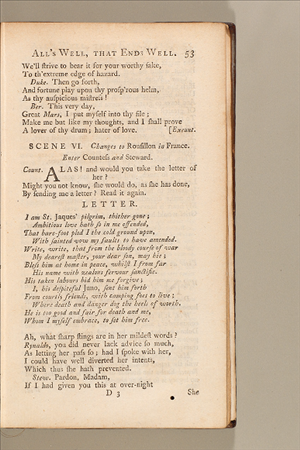 ALL'S WELL, THAT ENDS WELL. 53
We'll ſtrive to bear it for your worthy ſake,
To th' extreme edge of hazard.
Duke. Then go forth,
And fortune play upon thy proſp'rous helm,
As thy auſpicious miſtreſs!
Ber. This very day,
Great Mars, I put myſelf into thy file;
Make me but like my thoughts, and I ſhall prove
A lover of thy drum; hater of love. [Exeunt.
SCENE VI. Changes to Rouſillon in France.
Enter Counteſs and Steward.
Count. ALAS! and would you take the letter of
her?
Might you not know, ſhe would do, as ſhe has done,
By ſending me a letter? Read it again.
LETTER.
I am St. Jaques' pilgrim, thither gone;
Ambitious love hath ſo in me offended,
That bare-foot plod I the cold ground upon,
With ſainted vow my faults to have amended.
Write, write, that from the bloody courſe of war
My deareſt maſter, your dear ſon, may hie;
Bleſs him at home in peace, whilſt I from far
His name with zealous fervour ſanctifie.
His taken labours bid him me forgive;
I, his deſpiteful Juno, ſent him forth
From courtly friends, with camping foes to live;
Where death and danger dog the heels of worth.
He is too good and fair for death and me,
Whom I myſelf embrace, to ſet him free.
Ah, what ſharp ſtings are in her mildeſt words?
Rynaldo, you did never lack advice ſo much,
As letting her paſs ſo; had I ſpoke with her,
I could have well diverted her intents,
Which thus ſhe hath prevented.
Stew. Pardon, Madam,
If I had given you this at over-night
D 3 She